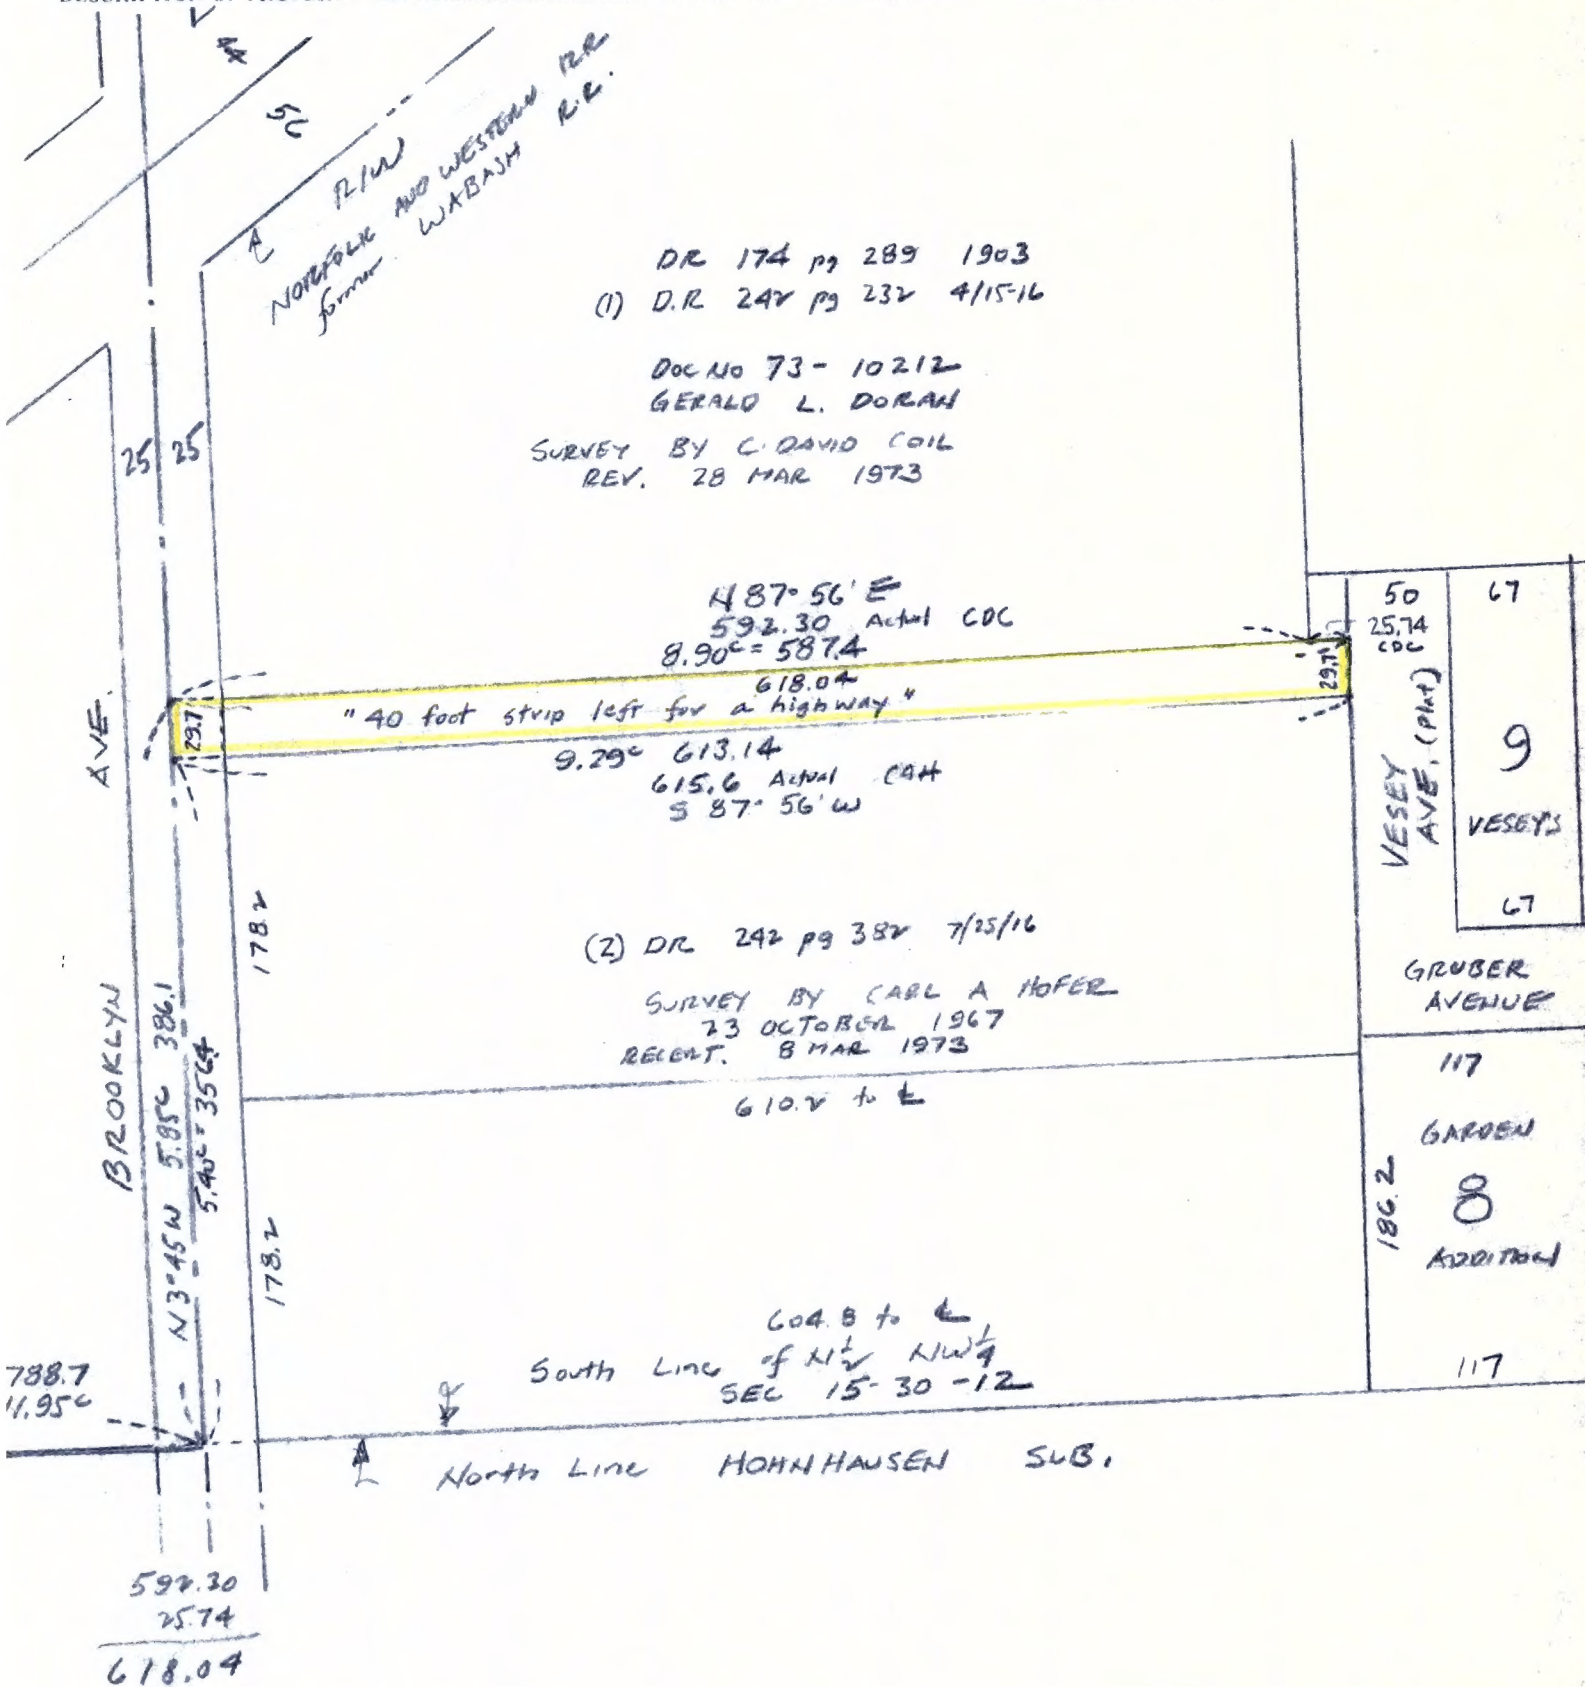 44
56
R/W
NORFOLK AND WESTERN RR
former WABASH R.R.
DR 174 pg 289 1903
(1) D.R 242 pg 232 4/15-16
DOC NO 73-10212
GERALD L. DORAN
SURVEY BY C. DAVID COIL
REV. 28 MAR 1973
25
25
N 87° 56' E
592.30 Actual CDC
8.90ᶜ = 587.4
618.04
"40 foot strip left for a highway"
29.7
29.7
9.29ᶜ 613.14
615.6 Actual CAH
S 87° 56' W
50
25.74
CDC
67
VESEY
AVE. (Plat)
9
VESEY'S
67
GRUBER
AVENUE
BROOKLYN AVE.
178.2
(2) DR 242 pg 382 7/25/16
SURVEY BY CARL A HOFER
23 OCTOBER 1967
RECERT. 8 MAR 1973
610.2 to ℄
N 3° 45 W 5.85ᶜ 386.1
5.40ᶜ = 356.4
178.2
117
GARDEN
8
ADDITION
186.2
117
604.8 to ℄
South Line of N½ NW¼
SEC 15-30-12
788.7
11.95ᶜ
North Line HOHNHAUSEN SUB.
592.30
25.74
618.04